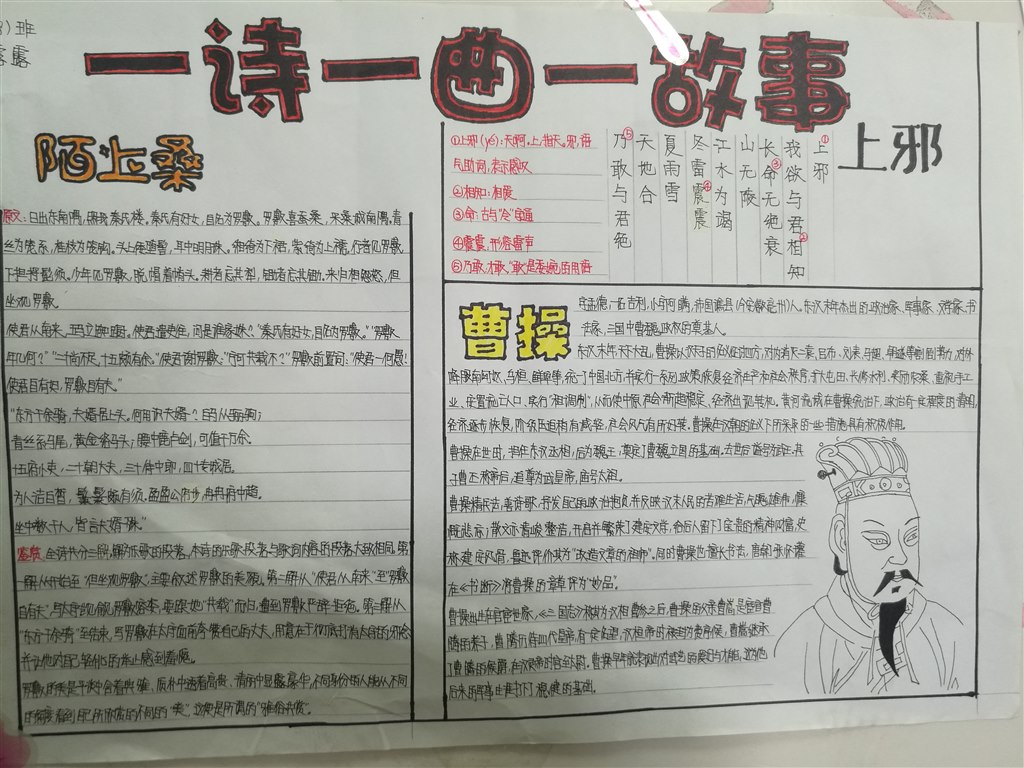 ）班
露露
一诗一曲一故事
陌上桑
原文：日出东南隅，照我秦氏楼。秦氏有好女，自名为罗敷。罗敷喜蚕桑，采桑城南隅，青
丝为笼系，桂枝为笼钩。头上倭堕髻，耳中明月珠。缃绮为下裙，紫绮为上襦。行者见罗敷
下担捋髭须。少年见罗敷，脱帽着帩头。耕者忘其犁，锄者忘其锄。来归相怨怒，但
坐观罗敷。
使君从南来，五马立踟蹰。使君遣吏往，问是谁家姝？“秦氏有好女，自名为罗敷。”“罗敷
年几何？”“二十尚不足，十五颇有余。”使君谢罗敷：“宁可共载不？”罗敷前置词：“使君一何愚！
使君自有妇，罗敷自有夫。”
“东方千余骑，夫婿居上头。何用识夫婿？白马从骊驹；
青丝系马尾，黄金络马头；腰中鹿卢剑，可值千万余。
十五府小吏，二十朝大夫，三十侍中郎，四十专城居。
为人洁白皙，鬑鬑颇有须。盈盈公府步，冉冉府中趋。
坐中数千人，皆言夫婿殊。”
鉴赏：全诗共分三解，解为乐歌的段落，本诗的乐歌段落与歌词内容的段落大致相同。第
一解从开始至“但坐观罗敷”，主要叙述罗敷的美貌。第二解从“使君从南来”至“罗敷
自有夫”，写太守觊觎罗敷姿本，要跟她“共载”而归，遭到罗敷严辞拒绝。第三解从
“东方千余骑”至结束，写罗敷在太守面前夸赞自己的丈夫，用意在于彻底打消太守的
并让他对自己轻佻的举止感到羞愧。
罗敷的美是平淡中含着典雅、质朴中透着高贵、清丽中显露豪华，不同身份的人能从不同
的角度看到自己所欣赏的不同的“美”，这便是所谓的“雅俗共赏”。
上邪
①上邪
我欲与君相②知
长命③无绝衰
山无陵
江水为竭
冬雷震④震
夏雨雪
天地合
乃⑤敢与君绝
①上邪(yé)：天啊。上：指天。邪，语
气助词，表示感叹
②相知：相爱
③命：古与“令”字通
④震震：形容雷声
⑤乃敢：才敢。“敢”是委婉的用语
曹操
字孟德，一名吉利，小字阿瞒，沛国谯县（今安徽亳州）人。东汉末年杰出的政治家、军事家、文学家、书
法家，三国中曹魏政权的奠基人。
东汉末年，天下大乱，曹操以汉天子的名义征讨四方，对内消灭二袁、吕布、刘表、马超、韩遂等割据势力，对外
降服南匈奴、乌桓、鲜卑等，统一了中国北方，并实行一系列政策恢复经济生产和社会秩序，扩大屯田、兴修水利、奖励农桑、重视手工
业、安置流亡人口、实行“租调制”，从而使中原社会渐趋稳定、经济出现转机。黄河流域在曹操统治下，政治有一定程度的清明，
经济逐步恢复，阶级压迫稍有减轻，社会风气有所好转。曹操在汉朝的名义下所采取的一些措施具有积极作用。
曹操在世时，担任东汉丞相，后为魏王，奠定了曹魏立国的基础。去世后谥号为武王。其
子曹丕称帝后，追尊为武皇帝，庙号太祖。
曹操精兵法，善诗歌，抒发自己的政治抱负，并反映汉末人民的苦难生活，气魄雄伟，慷
慨悲凉；散文亦清峻整洁，开启并繁荣了建安文学，给后人留下了宝贵的精神财富，史
称建安风骨，鲁迅评价其为“改造文章的祖师”。同时曹操也擅长书法，唐朝张怀瓘
在《书断》将曹操的章草评为“妙品”。
曹操出生在官宦世家，《三国志》称其为汉相曹参之后，曹操的父亲曹嵩，是宦官曹
腾的养子，曹腾历侍四代皇帝，有一定名望，汉桓帝时被封为费亭侯，曹嵩继承
了曹腾的侯爵，在汉灵帝时官至太尉。曹操早年就表现出对武艺的爱好与才能，这为他
后来的军事生涯打下稳健的基础。